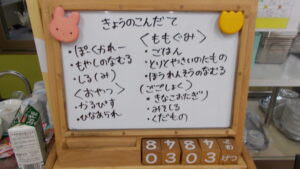 きょうのこんだて
・ぽーくかれー
・もやしのなむる
・しる(み)
〈おやつ〉
・かるぴす
・ひなあられ
〈ももぐみ〉
・ごはん
・とりとやさいのたもの
・ほうれんそうのなむる
(ごごしょく)
・きなこおにぎり
・みそしる
・くだもの